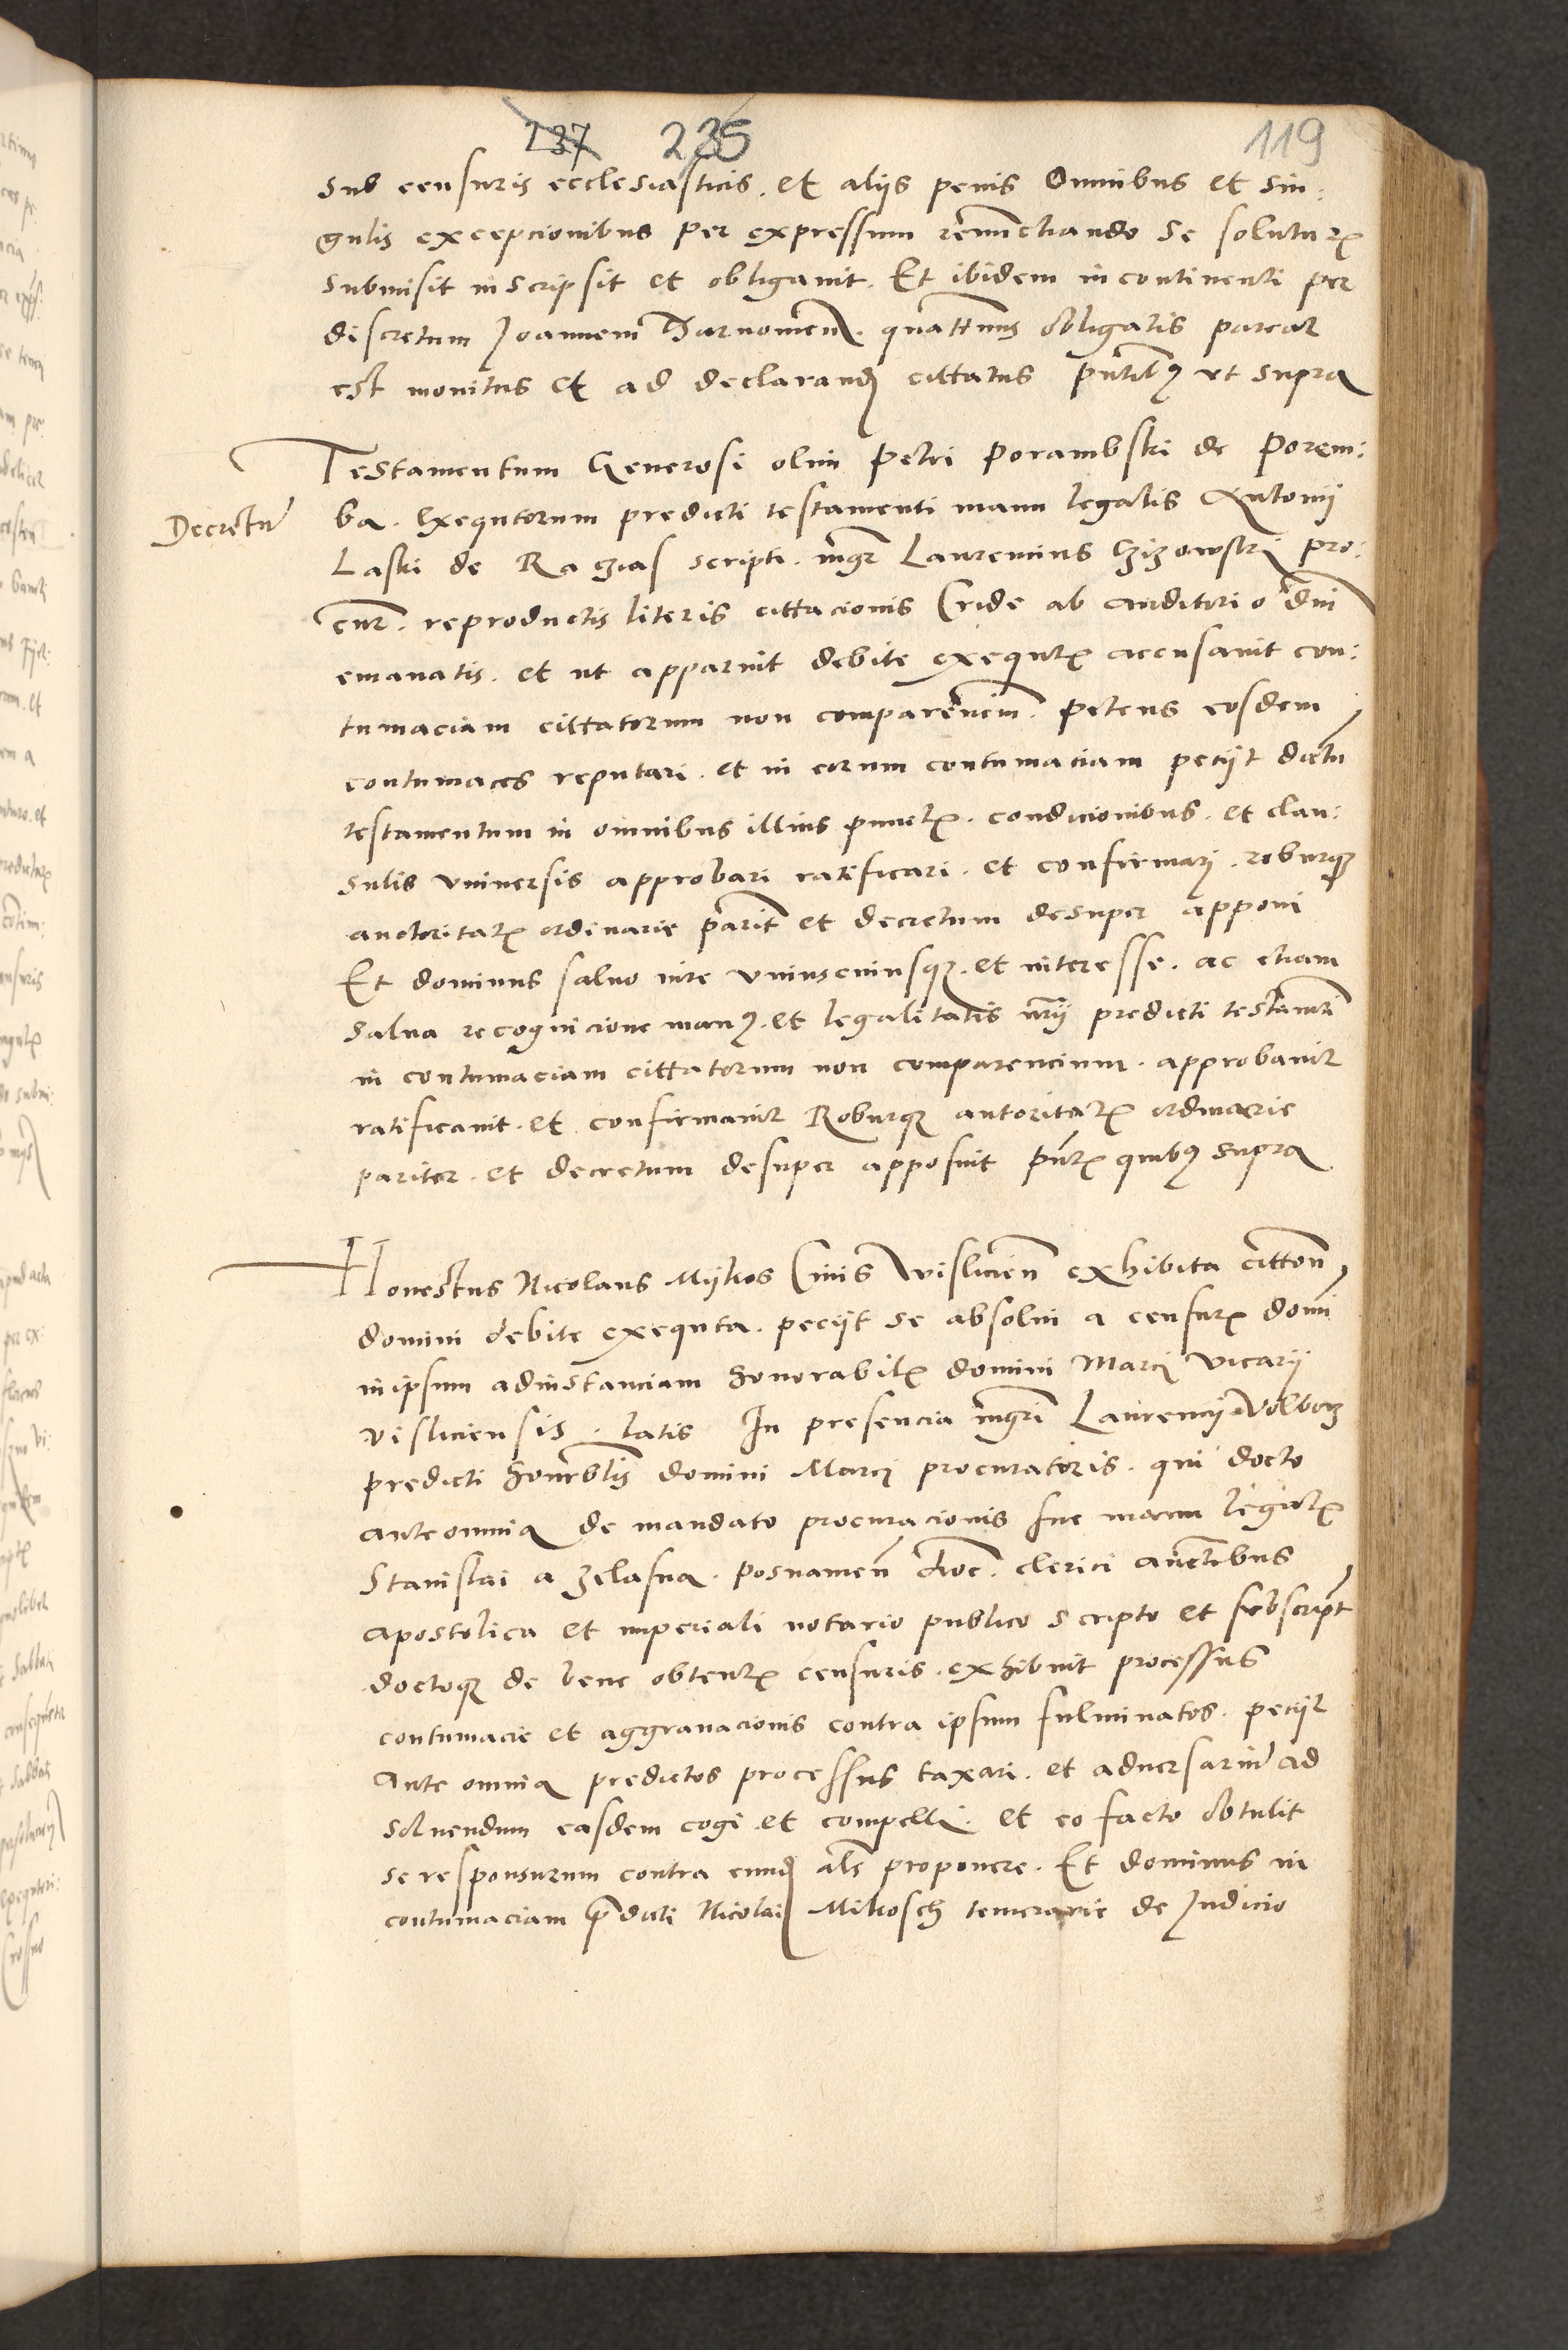 237 235 119
sub censuris ecclesiasticis. et alijs penis Omnibus et sin:
gulis excepcionibus per expressum renunctiando se solutur
submisit inscripsit et obligauit. Et ibidem incontinenti per
discretum Joannem quattenus obligatis pareat
est monitus et ad declarand cittatus pntibus vt supra
Testamentum Generosi olim Petri Porambski de Porem:
Decretu
ba. Exequtorum predicti testamenti manu legalis Antonij
Laski de Raczias scripti. mgr Laurencius pro:
cur. reproductis literis cittacionis Cride ab auditorio dni
emanatis. et ut apparuit debite exequt accusauit con:
tumaciam cittatorum non comparencium. petens eosdem
contumaces reputari. et in eorum contumaciam peciit dictu
testamentum in omnibus illius punct. condicionibus. et clau:
sulis vniuersis approbari ratificari. et confirmari. roburque
auctoritat ordinarie parit et decretum desuper apponi
Et dominus saluo iure vniuscuiusque. et interesse. ac etiam
salua recognicione manus. et legalitatis nrij predicti testamti
in contumaciam cittatorum non comparencium. approbauit
ratificauit. et confirmauit Roburque autoritat ordinarie
pariter. et decretum desuper apposuit pnt quibus supra
Honestus Nicolaus Mijkos Ciuis Wislicien exhibita citton
domini debite exequta. peciit se absolui a censur domi
in ipsum ad instanciam honorabil domini Marci vicarij
visliciensis. latis In presencia mgri Laurencij Wolborz
predicti honorblis domini Marci procuratoris. qui docto
ante omnia de mandato procuracionis sue manu legal
Stanislai a Zelasna. posnamen dioc. clerici auctibus
apostolica et imperiali notario publico scripto et subscript
doctoque de bene obtent censuris. exhibuit processus
contumacie et aggrauacionis contra ipsum fulminatos. peciit
Ante omnia predictos processus taxari. et aduersariu ad
soluendum easdem cogi et compelli. et eo facto obtulit
se responsurum contra eund als proponere. Et dominus in
contumaciam pdicti Nicolai Mikosch temerarie de Judicio